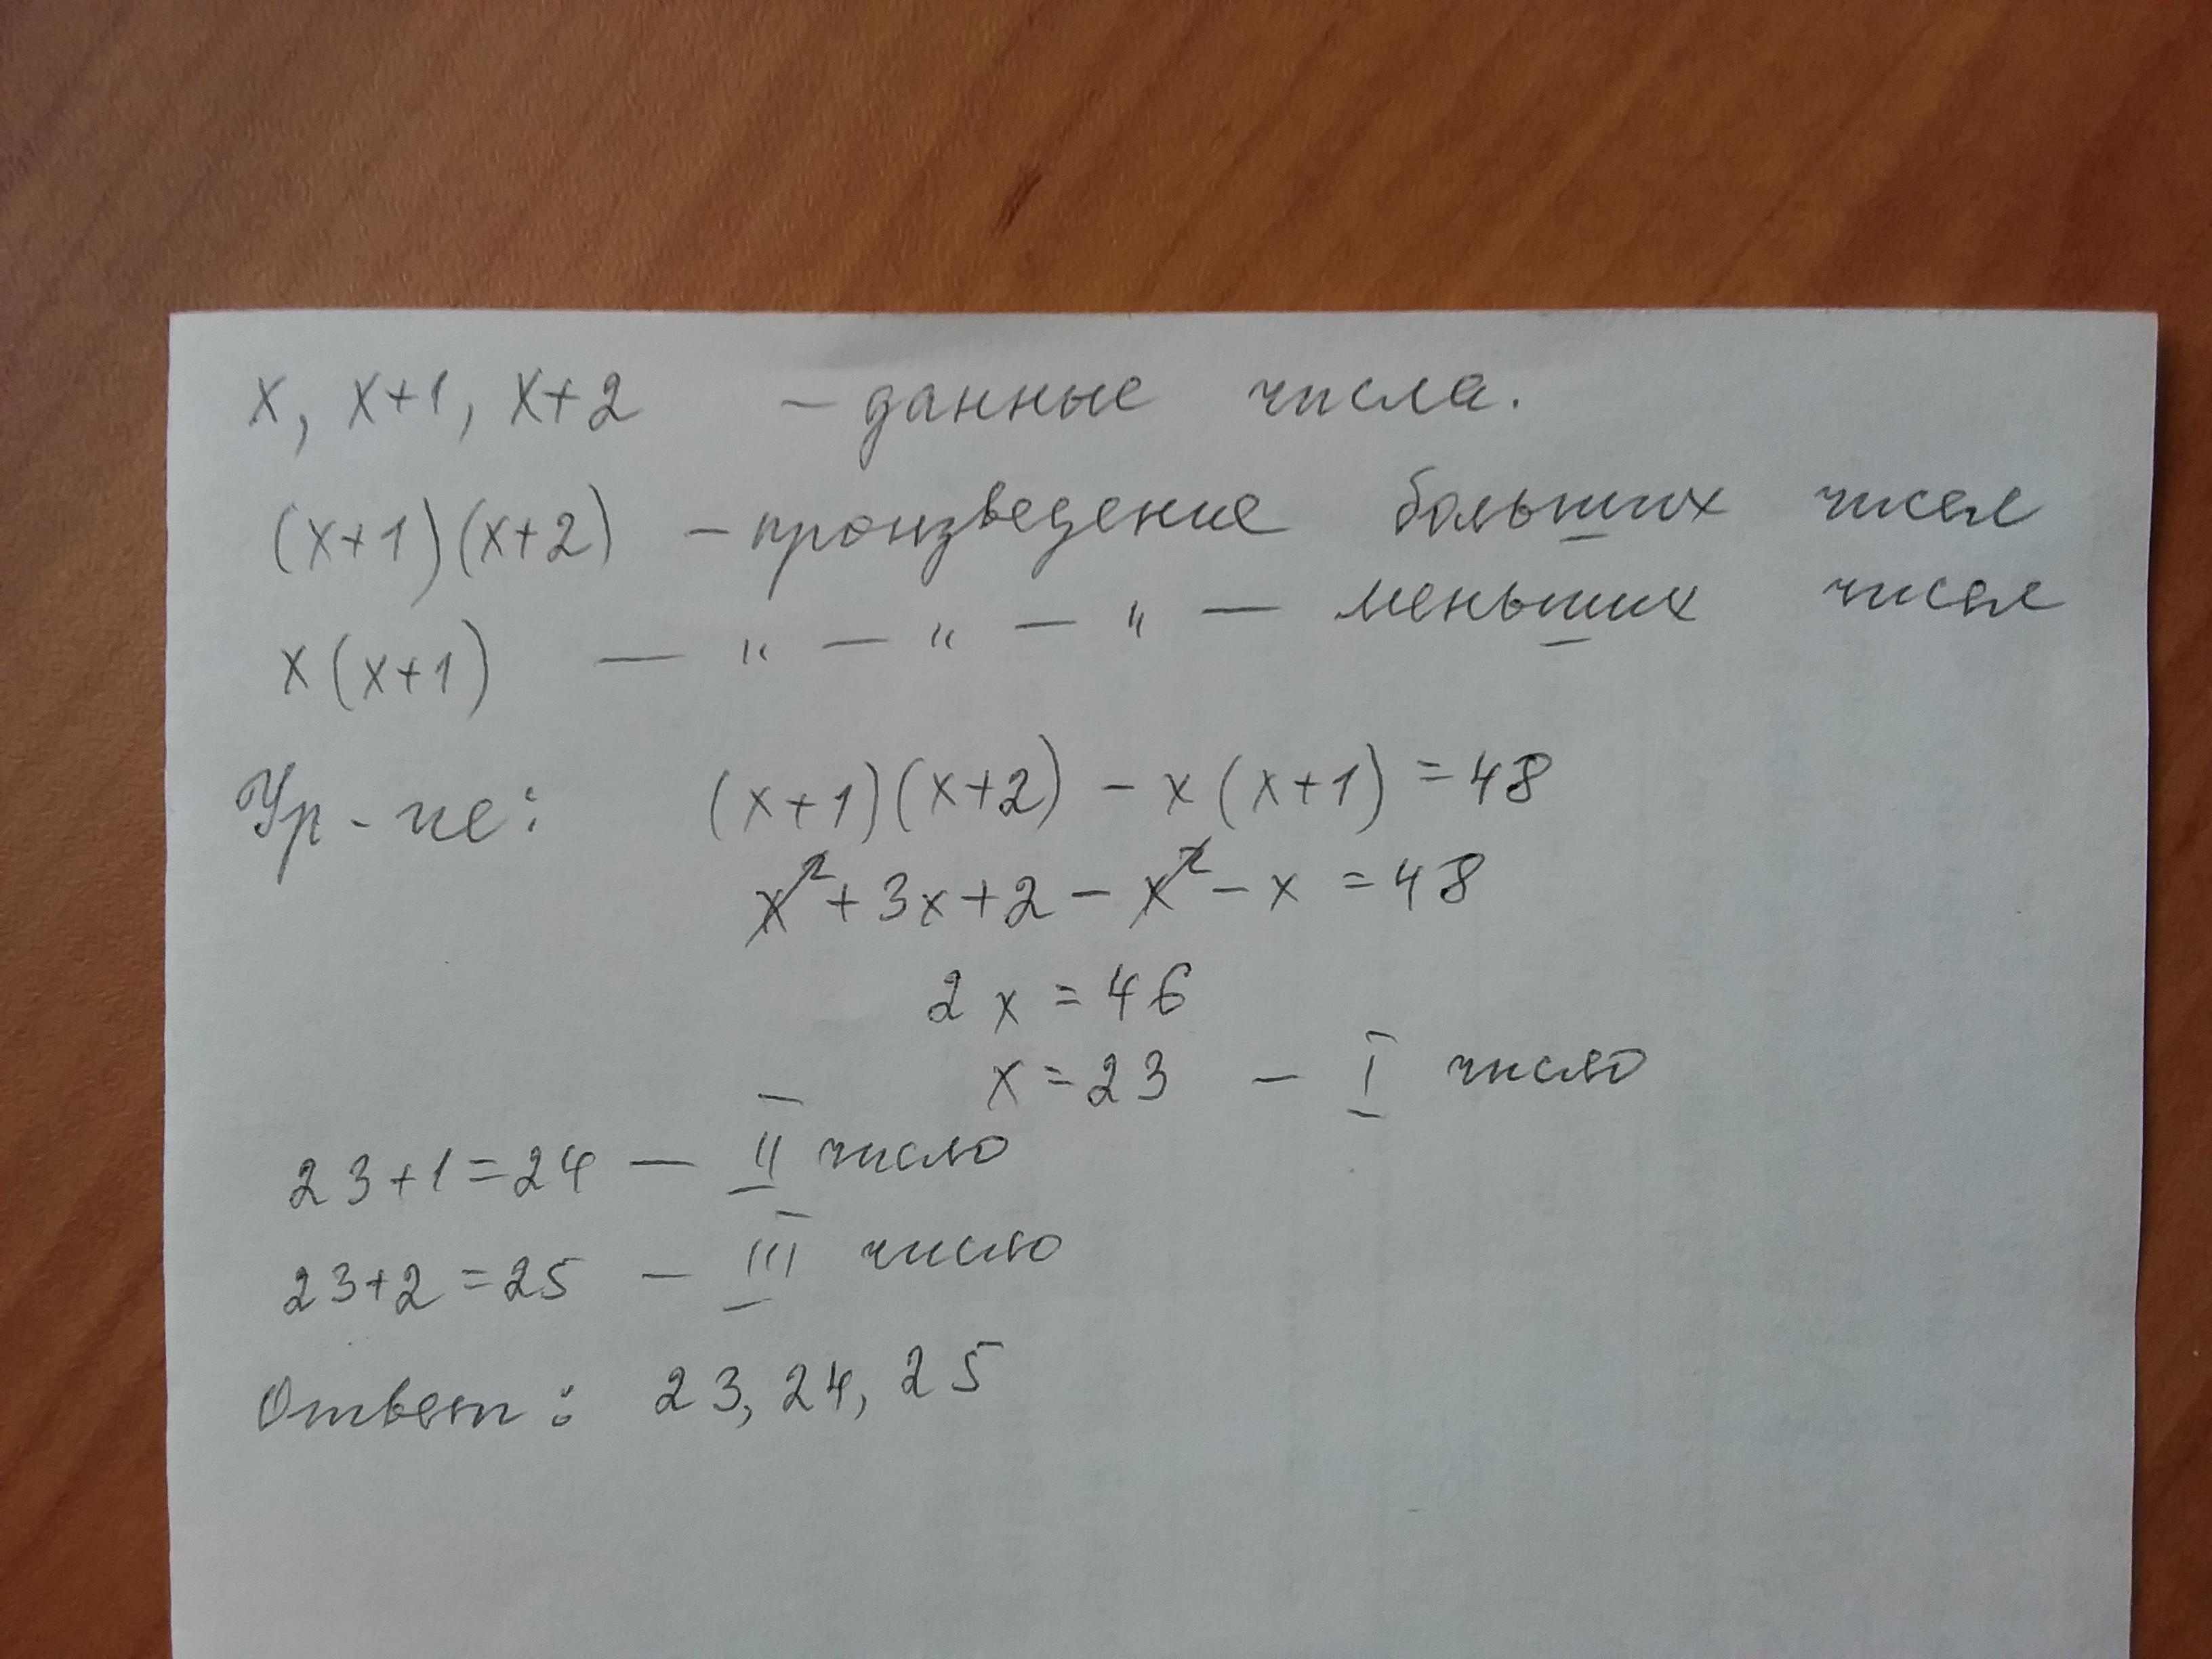 x, x+1, x+2 – данные числа.
(x+1)(x+2) – произведение больших чисел
x(x+1) — " — " — " — меньших чисел
Ур-ие: (x+1)(x+2) – x(x+1) = 48
x²+3x+2 – x² – x = 48
2x = 46
x = 23 – I число
23+1=24 — II число
23+2=25 — III число
Ответ: 23, 24, 25